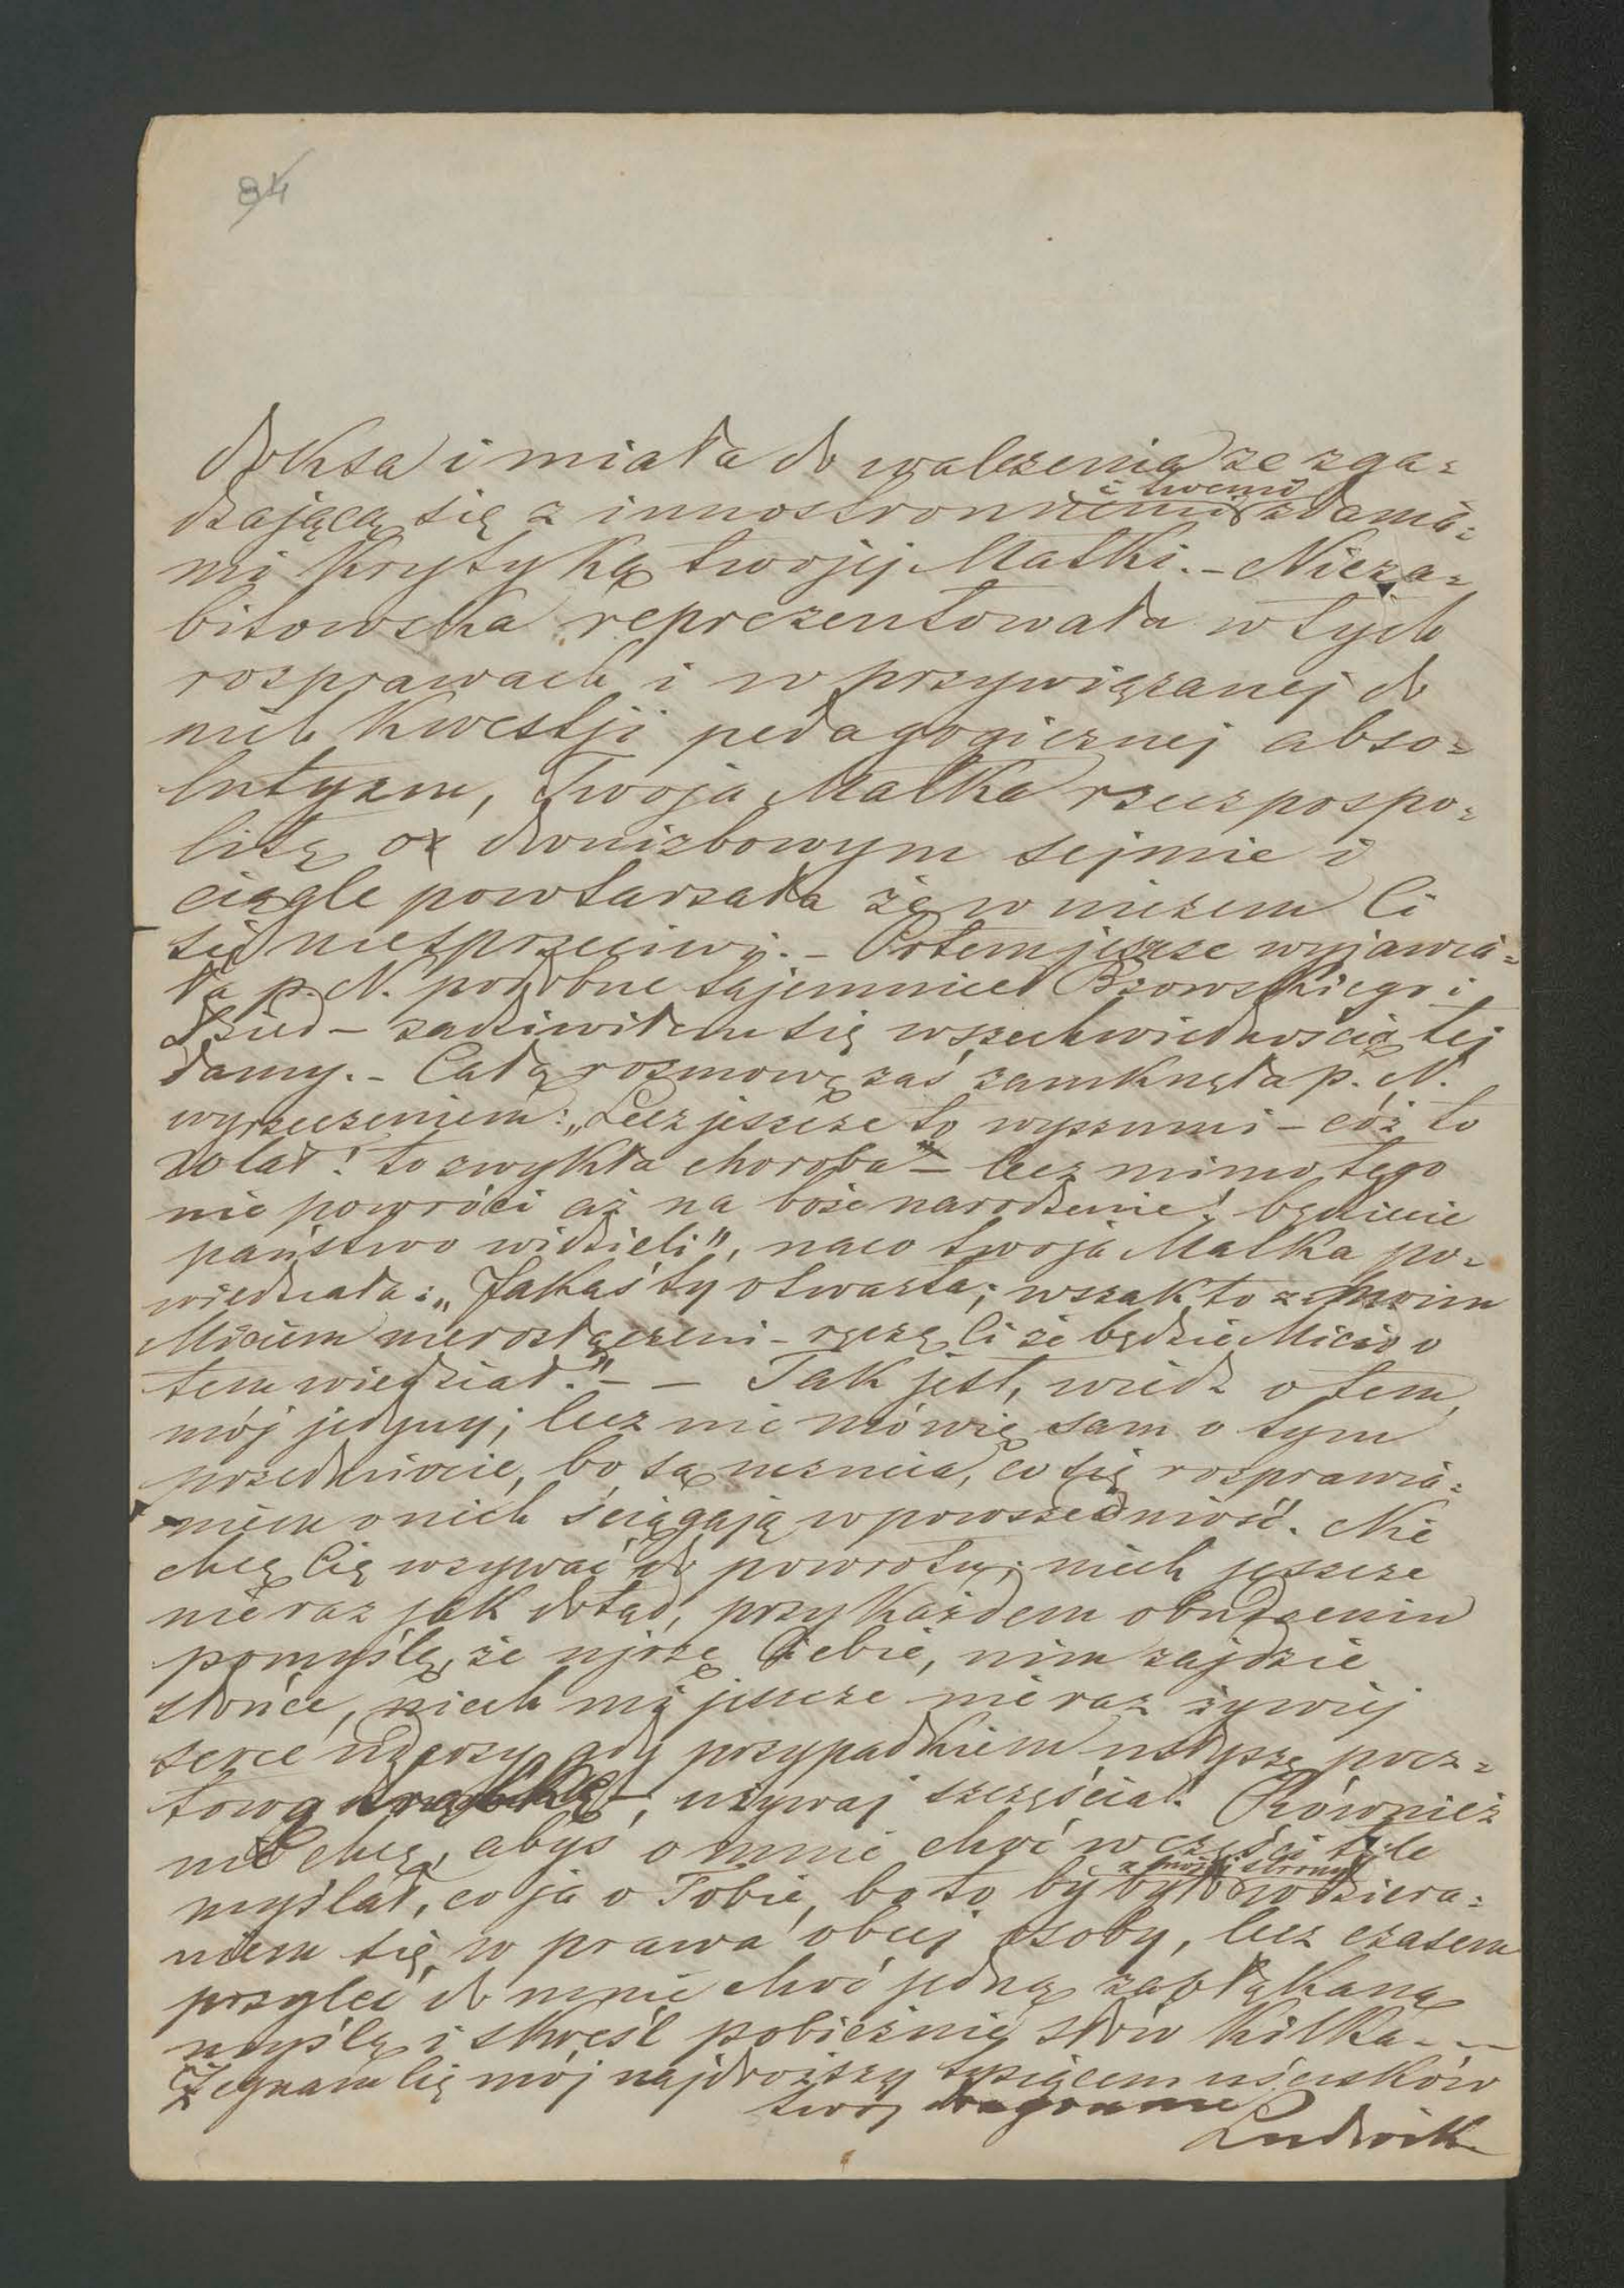 84
doksa i miała do walczenia ze zga=
dzającą się z innostronnemi i twemi zdania=
mi krytyką twojej Matki. – Nieza=
bitowska reprezentowała w tych
rozprawach i w przywiązanej do
nich kwestji pedagogicznej abso=
lutyzm, Twoja Matka rzeczpospo=
litę o dwuizbowym sejmie i
ciągle powtarzała że w niczem Ci
się niesprzeciwi. – Potem jeszcze wyjawia=
ła p. N. podobne tajemnice Bzowskiego i
Dzied – zadziwiłem się wszechwiednością tej
damy. – Całą rozmowę zaś zamknęła p. N.
wyrzeczeniem: „Lecz jeszcze to wyszumi – cóż to
20 lat! to zwykła choroba" – lecz mimo tego
nie powróci aż na boże narodzenie! będziecie
państwo widzieli", naco twoja Matka po=
wiedziała: „Jakaś ty otwarta; wszak to z moim
Miciem nierozłączeni – ręczę Ci że będzie Micio o
tem wiedział." – – Tak jest, wiedz o tem,
mój jedyny; lecz nie mówię sam o tym
przedmiocie, bo są uczucia, co się rozprawia=
niem o nich ściągają w powszedniość. Nie
chcę Cię wzywać do powrotu; niech jeszcze
nieraz jak dotąd, przy każdem obudzeniu
pomyślę, że ujrzę Ciebie, nim zajdzie
słońce, niech mi jeszcze nie raz żywiej
serce uderzy gdy przypadkiem usłyszę pocz=
tową trąbkę –, używaj szczęścia! Również
nie chcę, abyś o mnie choć w części tyle
myślał, co ja o Tobie, bo to by było z mojej strony wdziera=
niem się w prawa obcej osoby, lecz czasem
przyleć do mnie choć jedną zabłąkaną
myślą i skreśl pobieżnie słów kilka – –
Żegnam Cię mój najdroższy tysiącem uścisków
twój
Ludwik